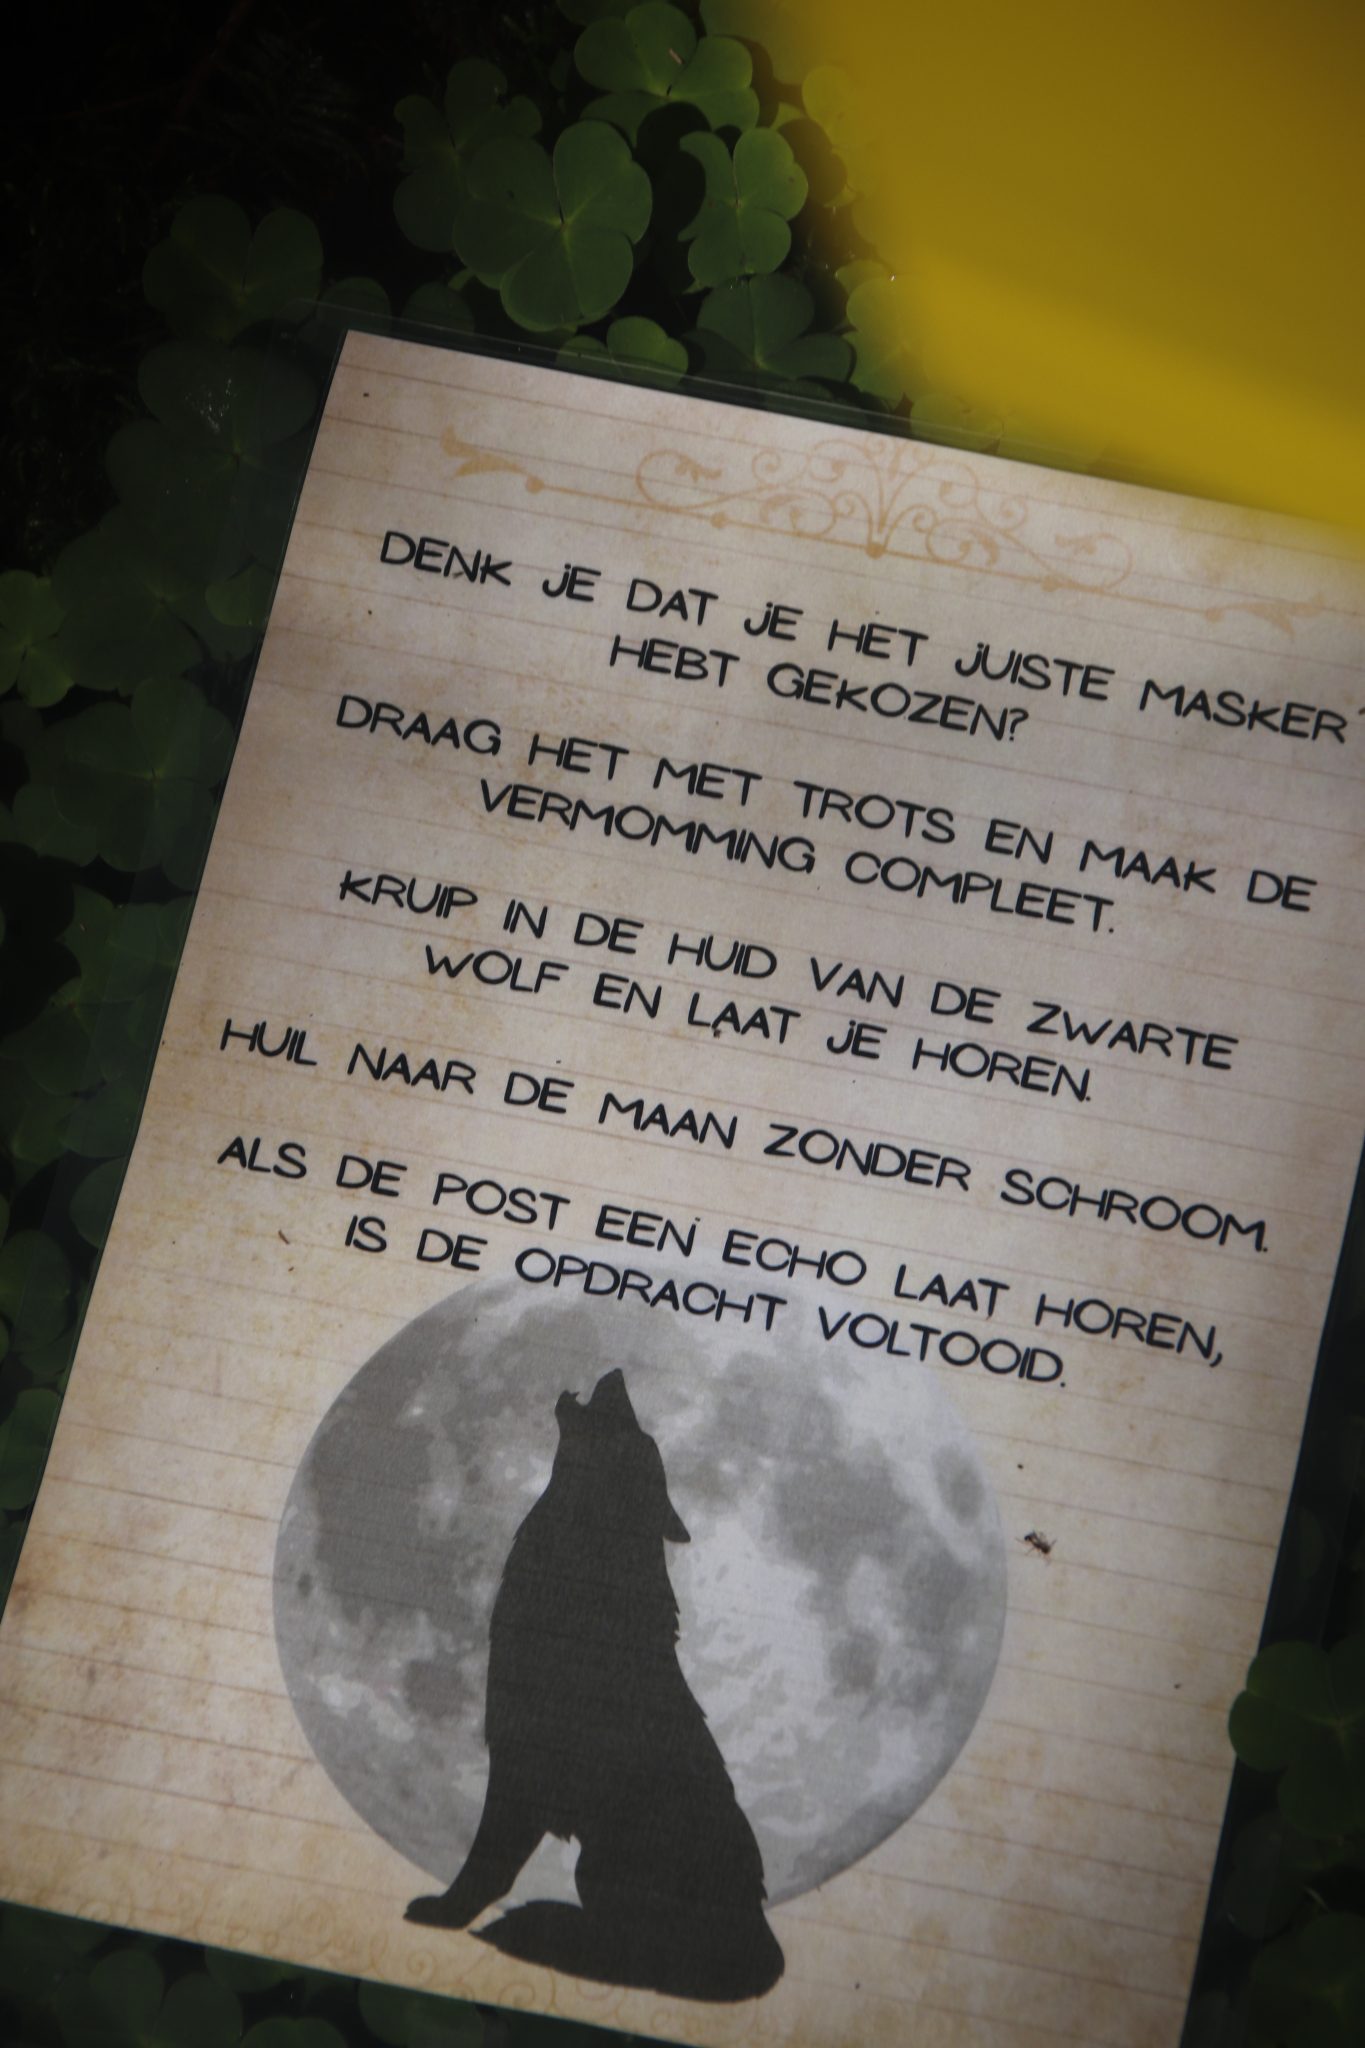 DENK JE DAT JE HET JUISTE MASKER
HEBT GEKOZEN?
DRAAG HET MET TROTS EN MAAK DE
VERMOMMING COMPLEET.
KRUIP IN DE HUID VAN DE ZWARTE
WOLF EN LAAT JE HOREN.
HUIL NAAR DE MAAN ZONDER SCHROOM.
ALS DE POST EEN ECHO LAAT HOREN,
IS DE OPDRACHT VOLTOOID.